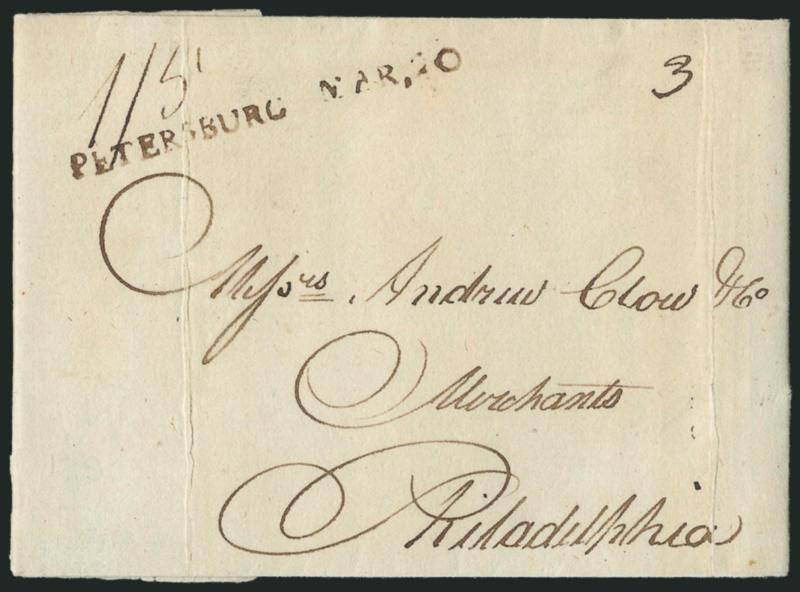 1/5
3
PETERSBURG MAR, 20
Messrs. Andrew Clow & Co
Merchants
Philadelphia